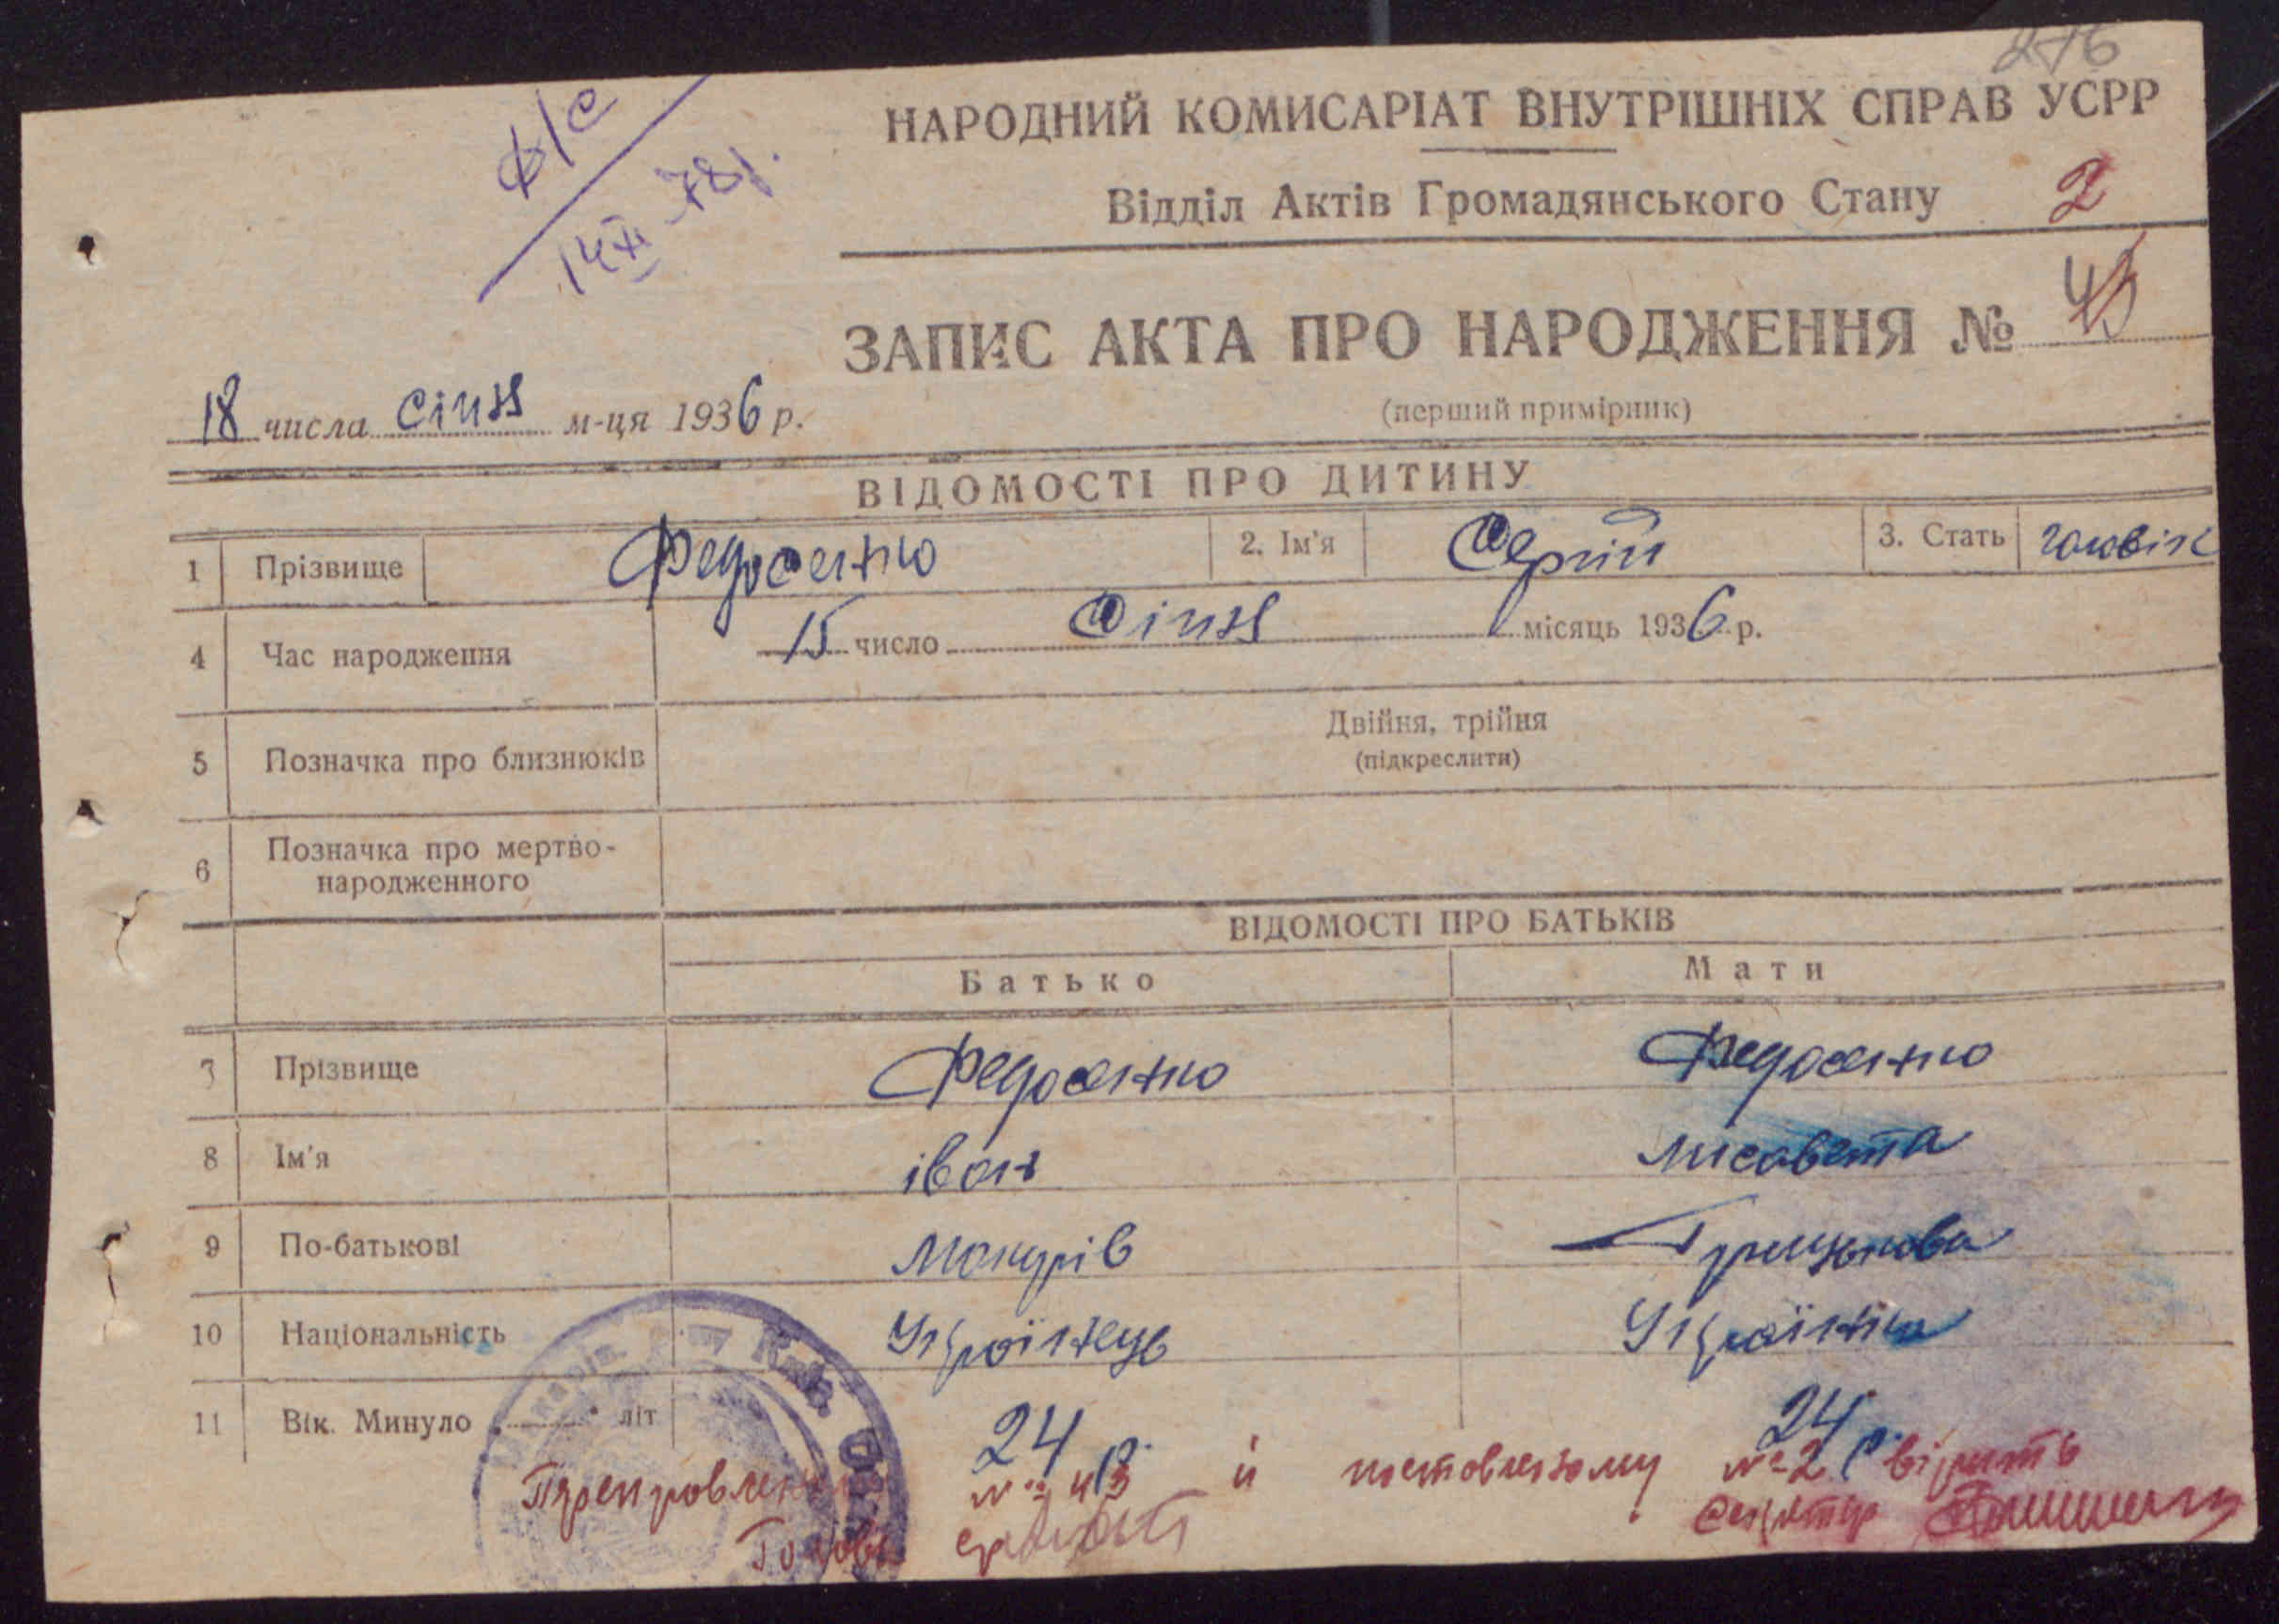 276
НАРОДНИЙ КОМИСАРІАТ ВНУТРІШНІХ СПРАВ УСРР
Відділ Актів Громадянського Стану 2
ф/с
14 XI 78р.
ЗАПИС АКТА ПРО НАРОДЖЕННЯ №
(перший примірник)
18 числа січня м-ця 1936 р.
ВІДОМОСТІ ПРО ДИТИНУ
1 Прізвище Федосенко 2. Ім'я Сергій 3. Стать чоловіч
4 Час народження 15 число січня місяць 1936 р.
5 Позначка про близнюків Двійня, трійня
(підкреслити)
6 Позначка про мертво-
народженного
ВІДОМОСТІ ПРО БАТЬКІВ
Батько Мати
7 Прізвище Федосенко Федосенко
8 Ім'я іван лисавета
9 По-батькові Мокурів Грицькова
10 Національність Українець Українка
11 Вік. Минуло літ 24 р. 24 р.
№ 43 й поставленому № 2 вірить
Голова секретар